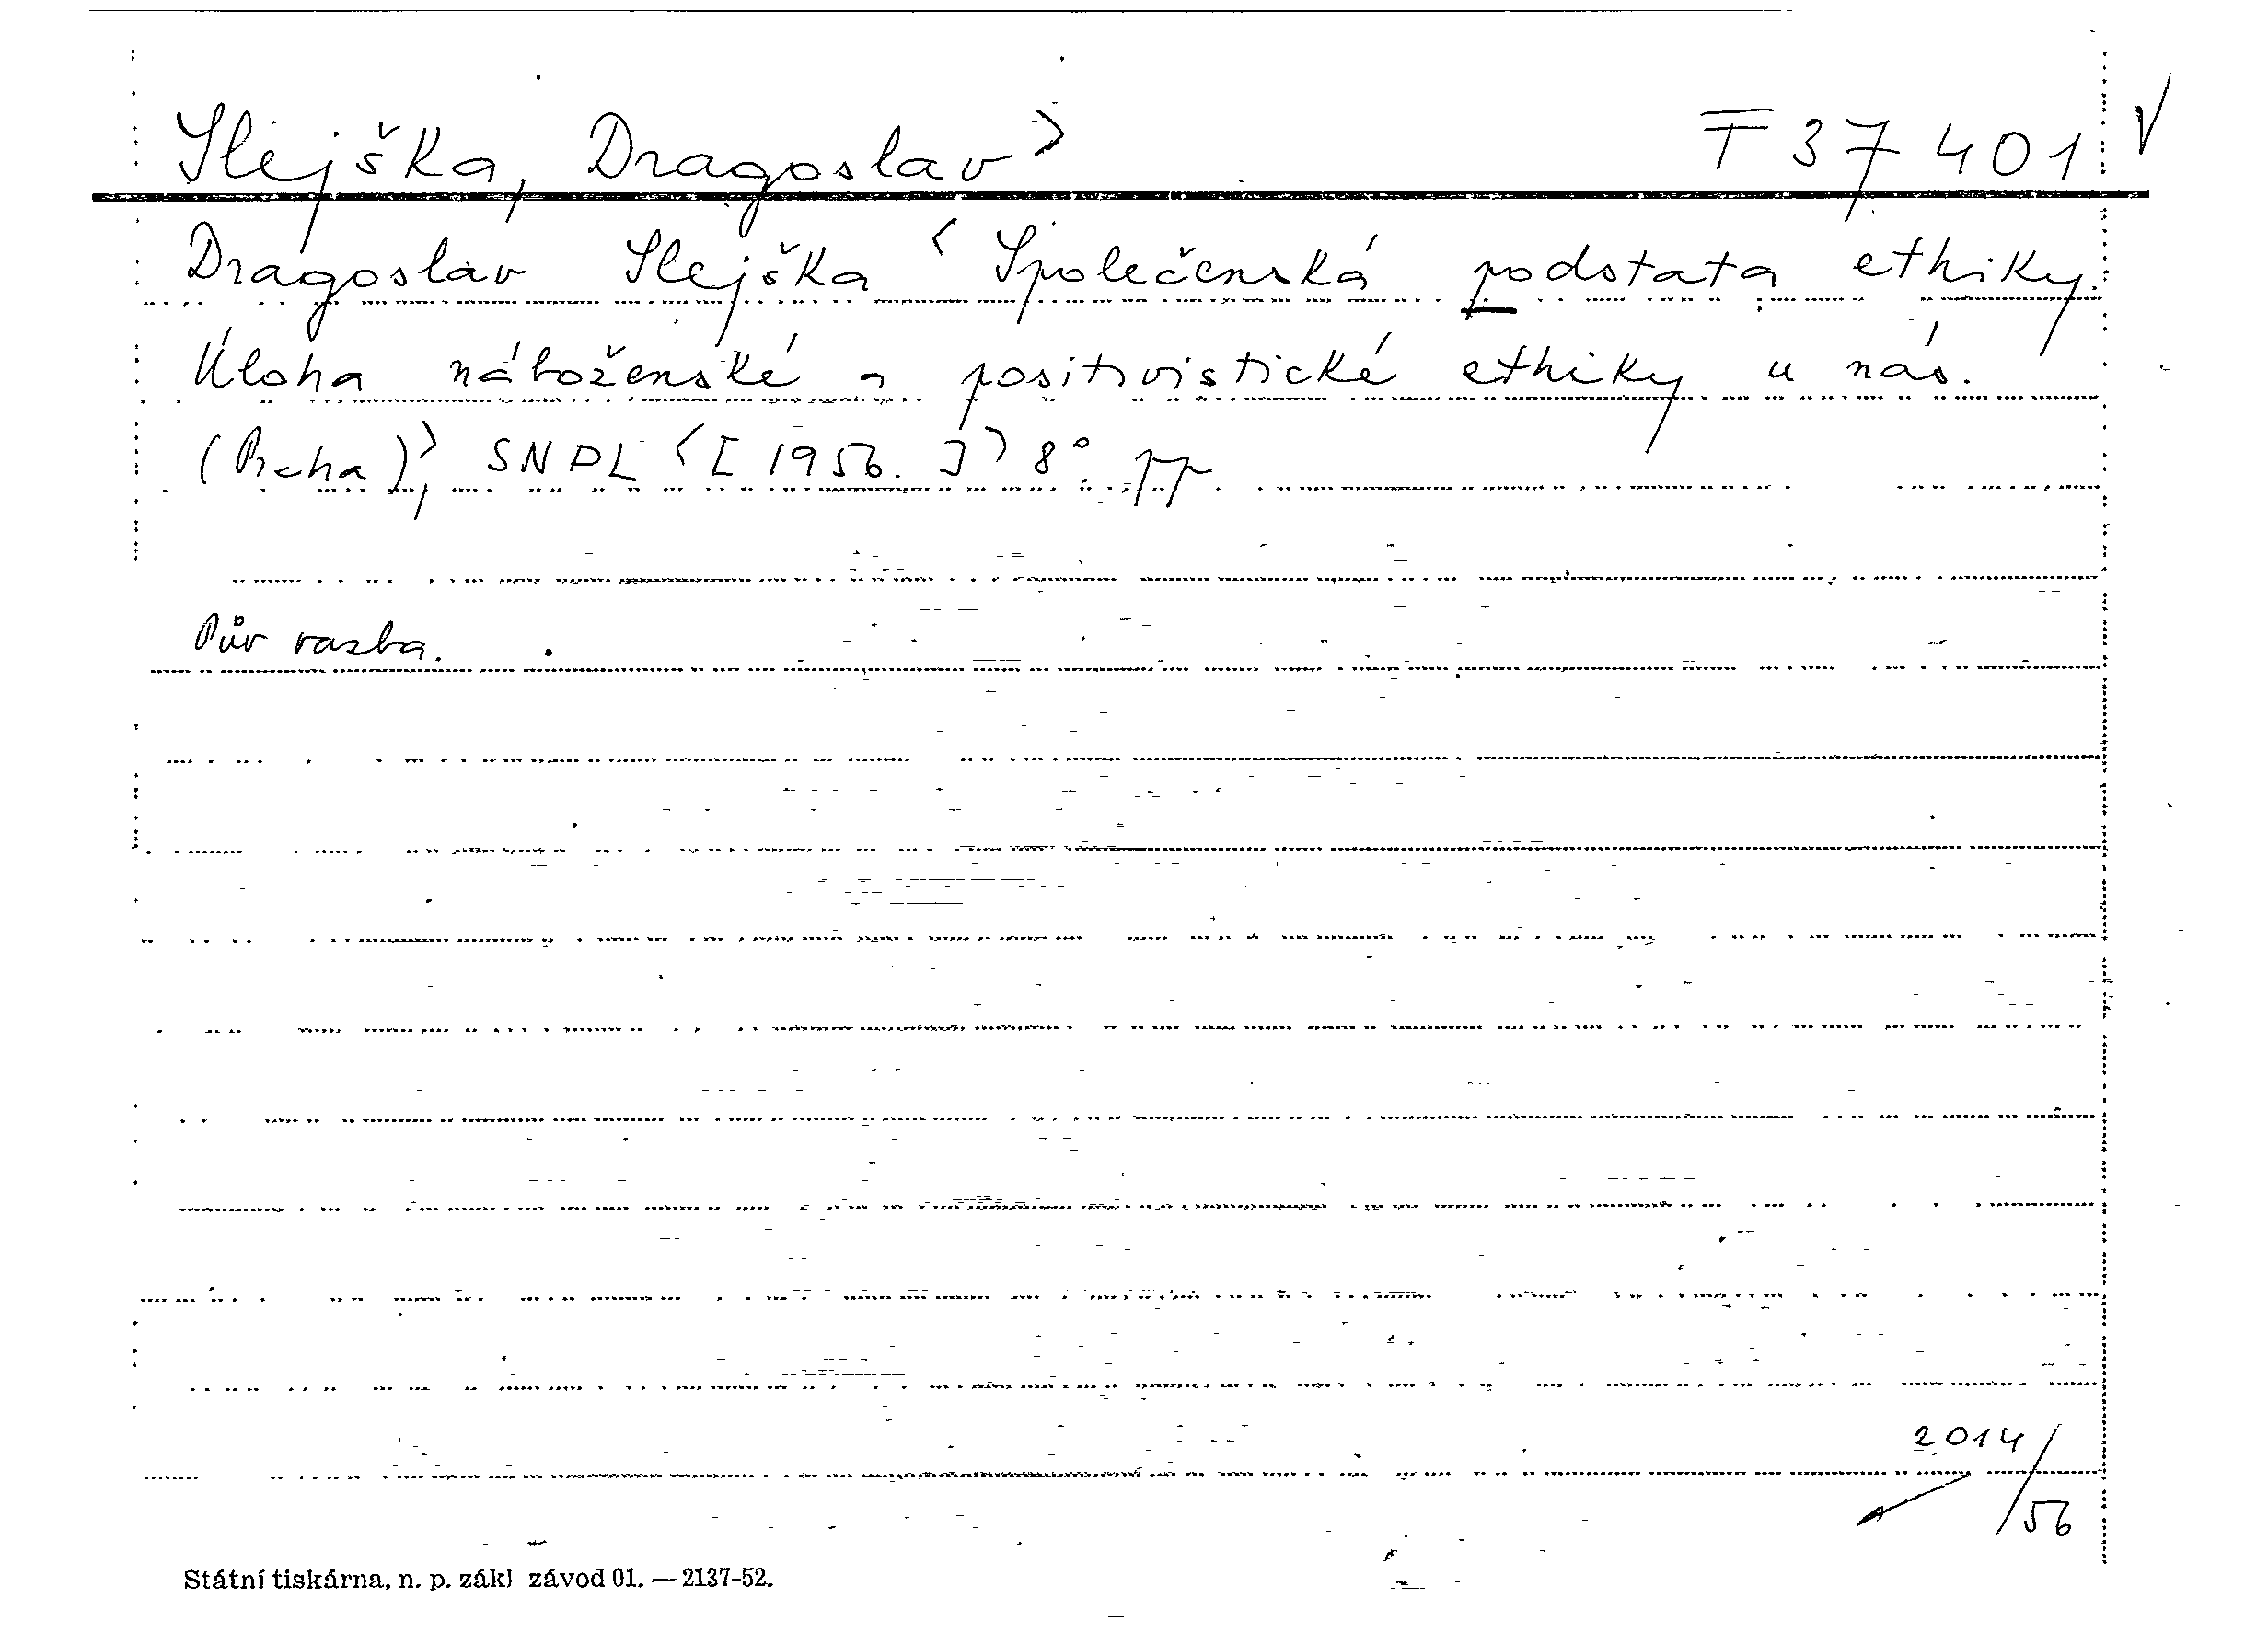 Slejška, Dragoslav> F 37 401 V
Dragoslav Slejška < Společenská podstata ethiky.
Úloha náboženské a positivistické ethiky u nás.
(Praha)>, SNPL <[1956.]> 8°. pp.
Pův vazba.
2014/
/56
Státní tiskárna, n. p. zákl závod 01. — 2137-52.